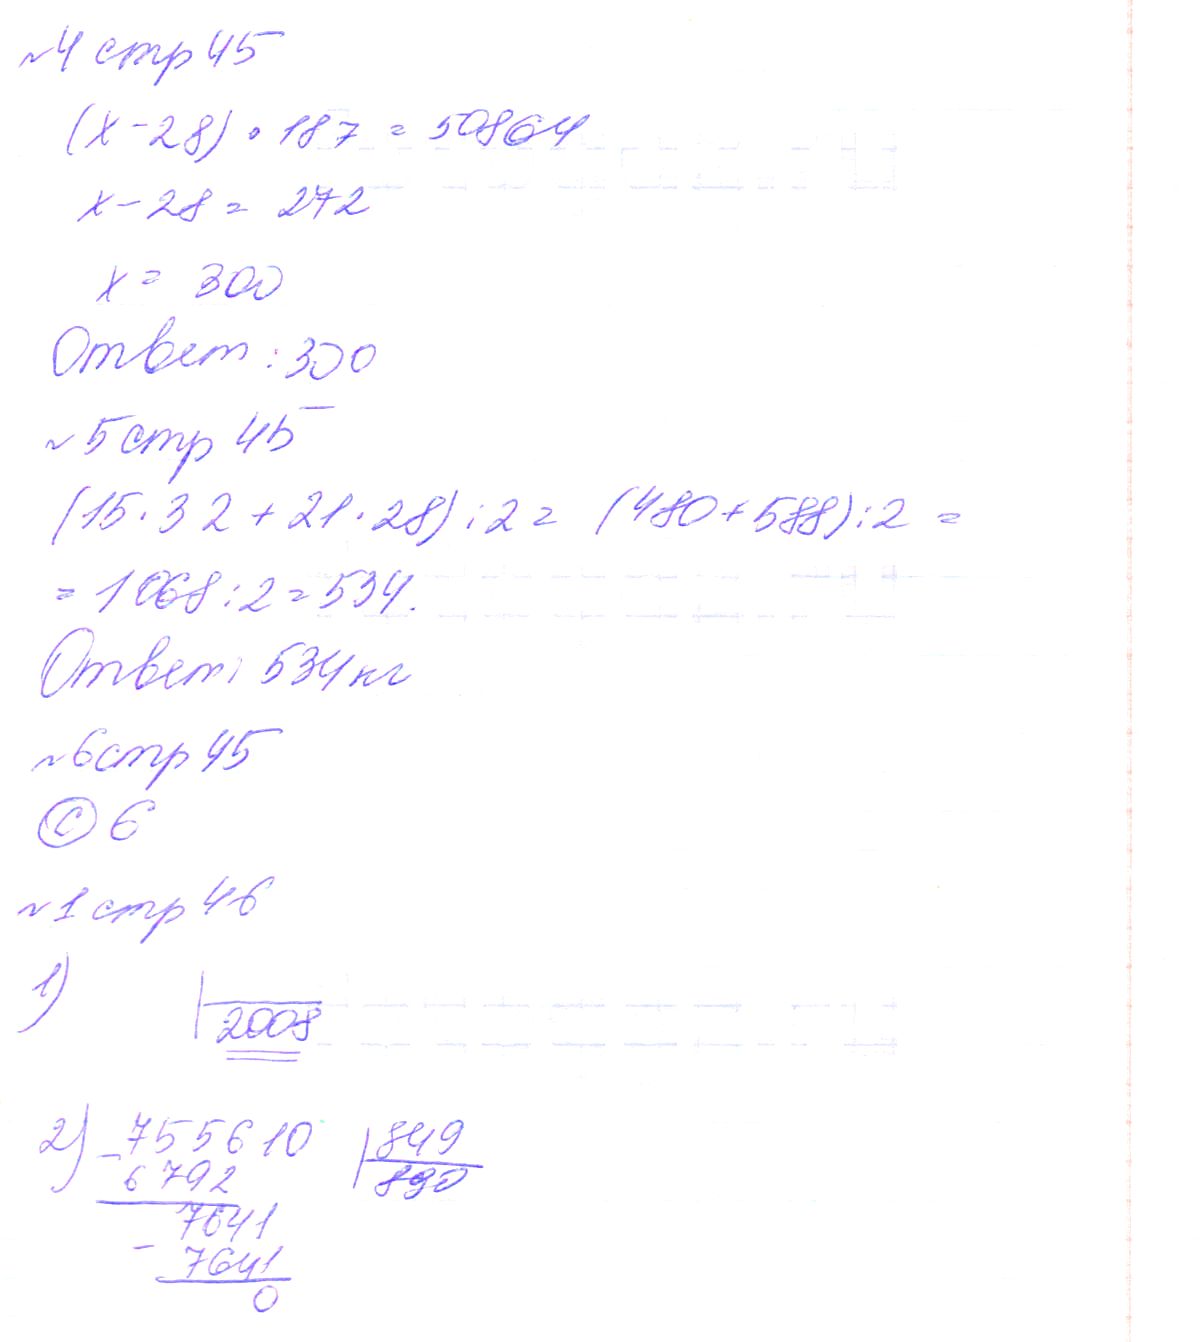 №4 стр 45
(x-28)·187=50864
x-28=272
x=300
Ответ:300
№5 стр 45
(15·32+21·28):2=(480+588):2=
=1068:2=534.
Ответ: 534кг
№6 стр 45
© 6
№1 стр 46
1)
2008
2) 755610 849
- 6792 890
7641
- 7641
0